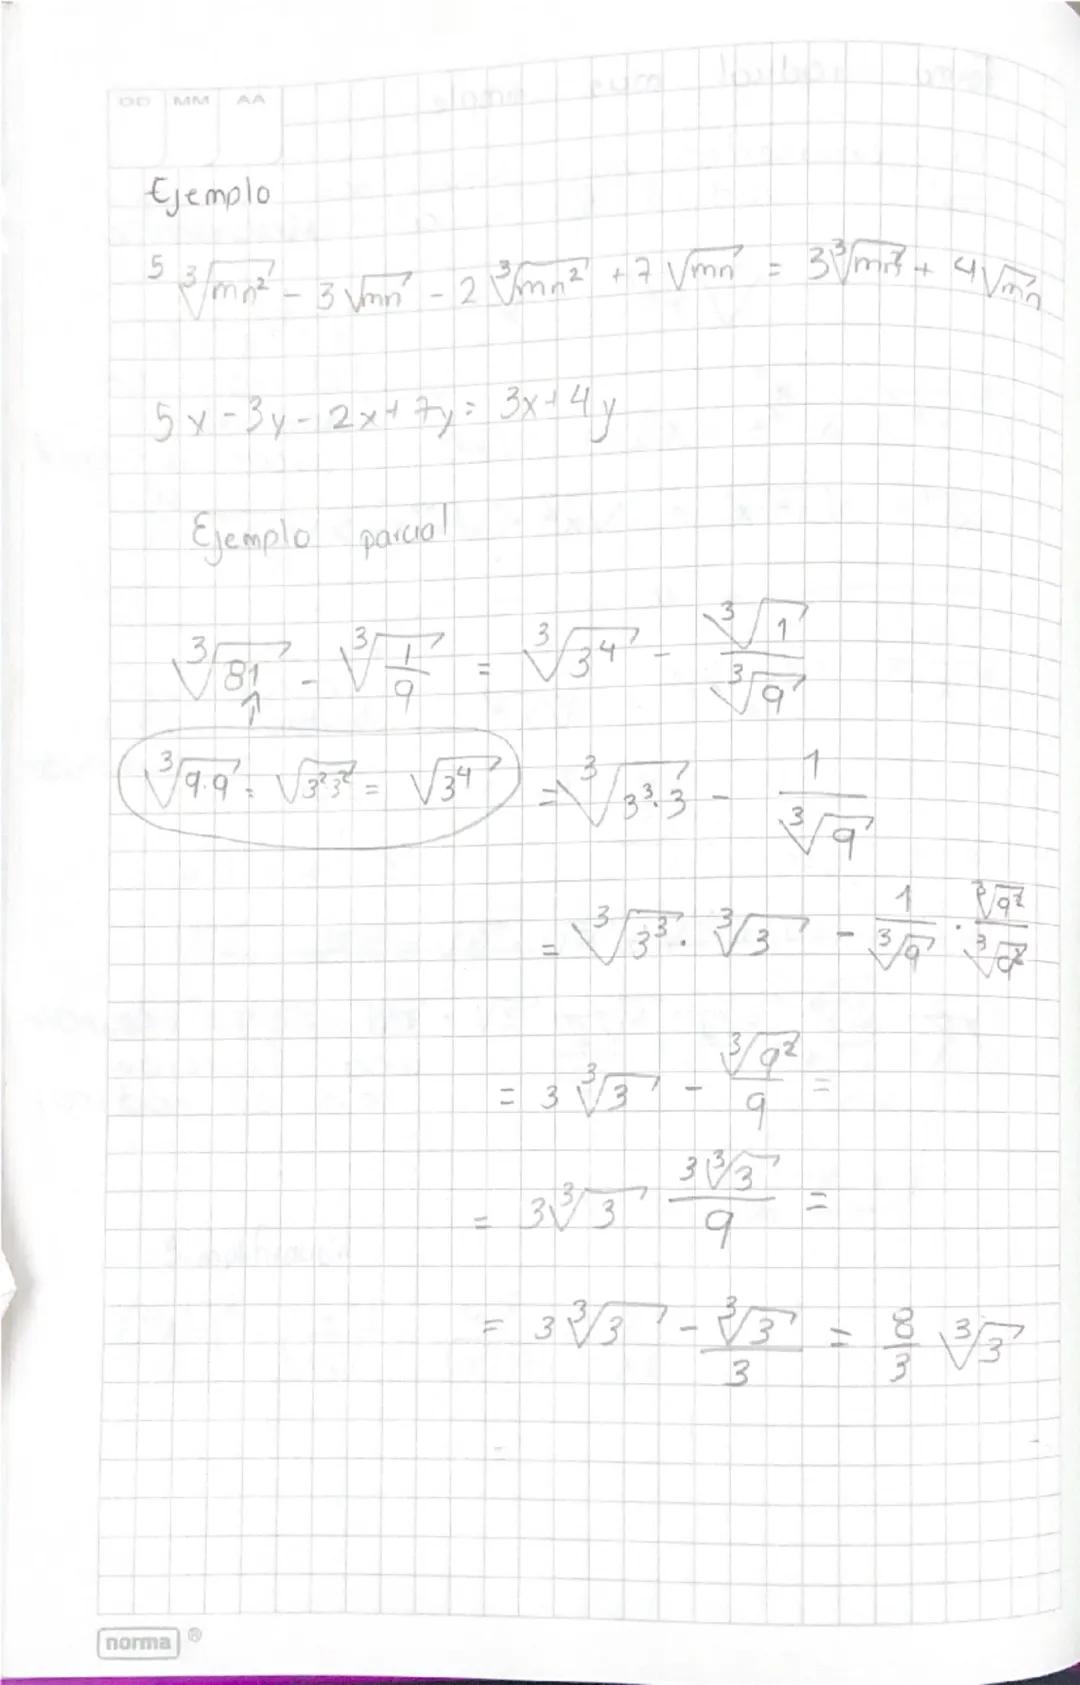 DD MM AA
Ejemplo
5 ∛(mn²) - 3 √(mn) - 2 ∛(mn²) + 7 √(mn) = 3 ∛(mn²) + 4 √(mn)
5x - 3y - 2x + 7y = 3x + 4y
Ejemplo parcial
∛81 - ∛(1/9) = ∛(3⁴) - ∛1/∛9
↑
∛(9·9) = √(3²3²) = √(3⁴)
= ∛(3³·3) - 1/∛9
= ∛(3³) · ∛3 - 1/∛9 · ∛(9²)/∛(9²)
= 3 ∛3 - ∛(9²)/9 =
= 3∛3 3∛3/9 =
= 3∛3 - ∛3/3 = 8/3 ∛3
norma ®